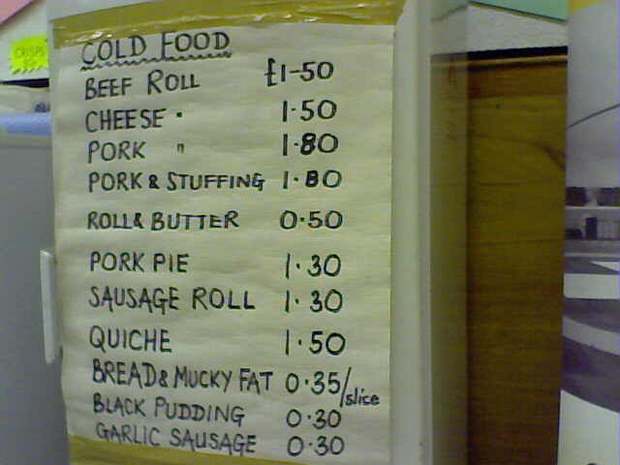 COLD FOOD
BEEF ROLL £1-50
CHEESE " 1·50
PORK " 1·80
PORK & STUFFING 1·80
ROLL & BUTTER 0·50
PORK PIE 1·30
SAUSAGE ROLL 1·30
QUICHE 1·50
BREAD & MUCKY FAT 0·35/slice
BLACK PUDDING 0·30
GARLIC SAUSAGE 0·30
CRISPS